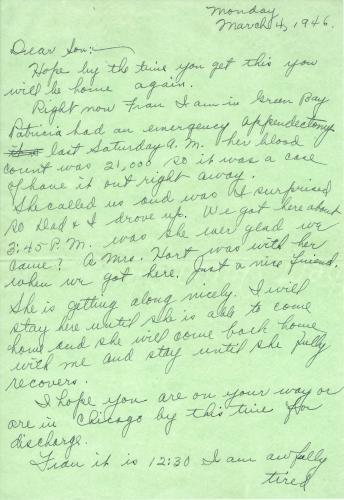 Monday
March 4, 1946.
Dear Son:
Hope by the time you get this you
will be home again.
Right now Fran I am in Green Bay
Patricia had an emergency appendectomy
last Saturday A.M. her blood
count was 21,000 so it was a case
of have it out right away.
She called us and was I surprised
so Dad & I drove up. We got here about
3:45 P.M. was she ever glad we
came? A Mrs. Hort was with her
when we got here. Just a nice friend.
She is getting along nicely. I will
stay here until she is able to come
home and she will come back home
with me and stay until she fully
recovers.
I hope you are on your way or
are in Chicago by this time for
discharge.
Fran it is 12:30 I am awfully
tired